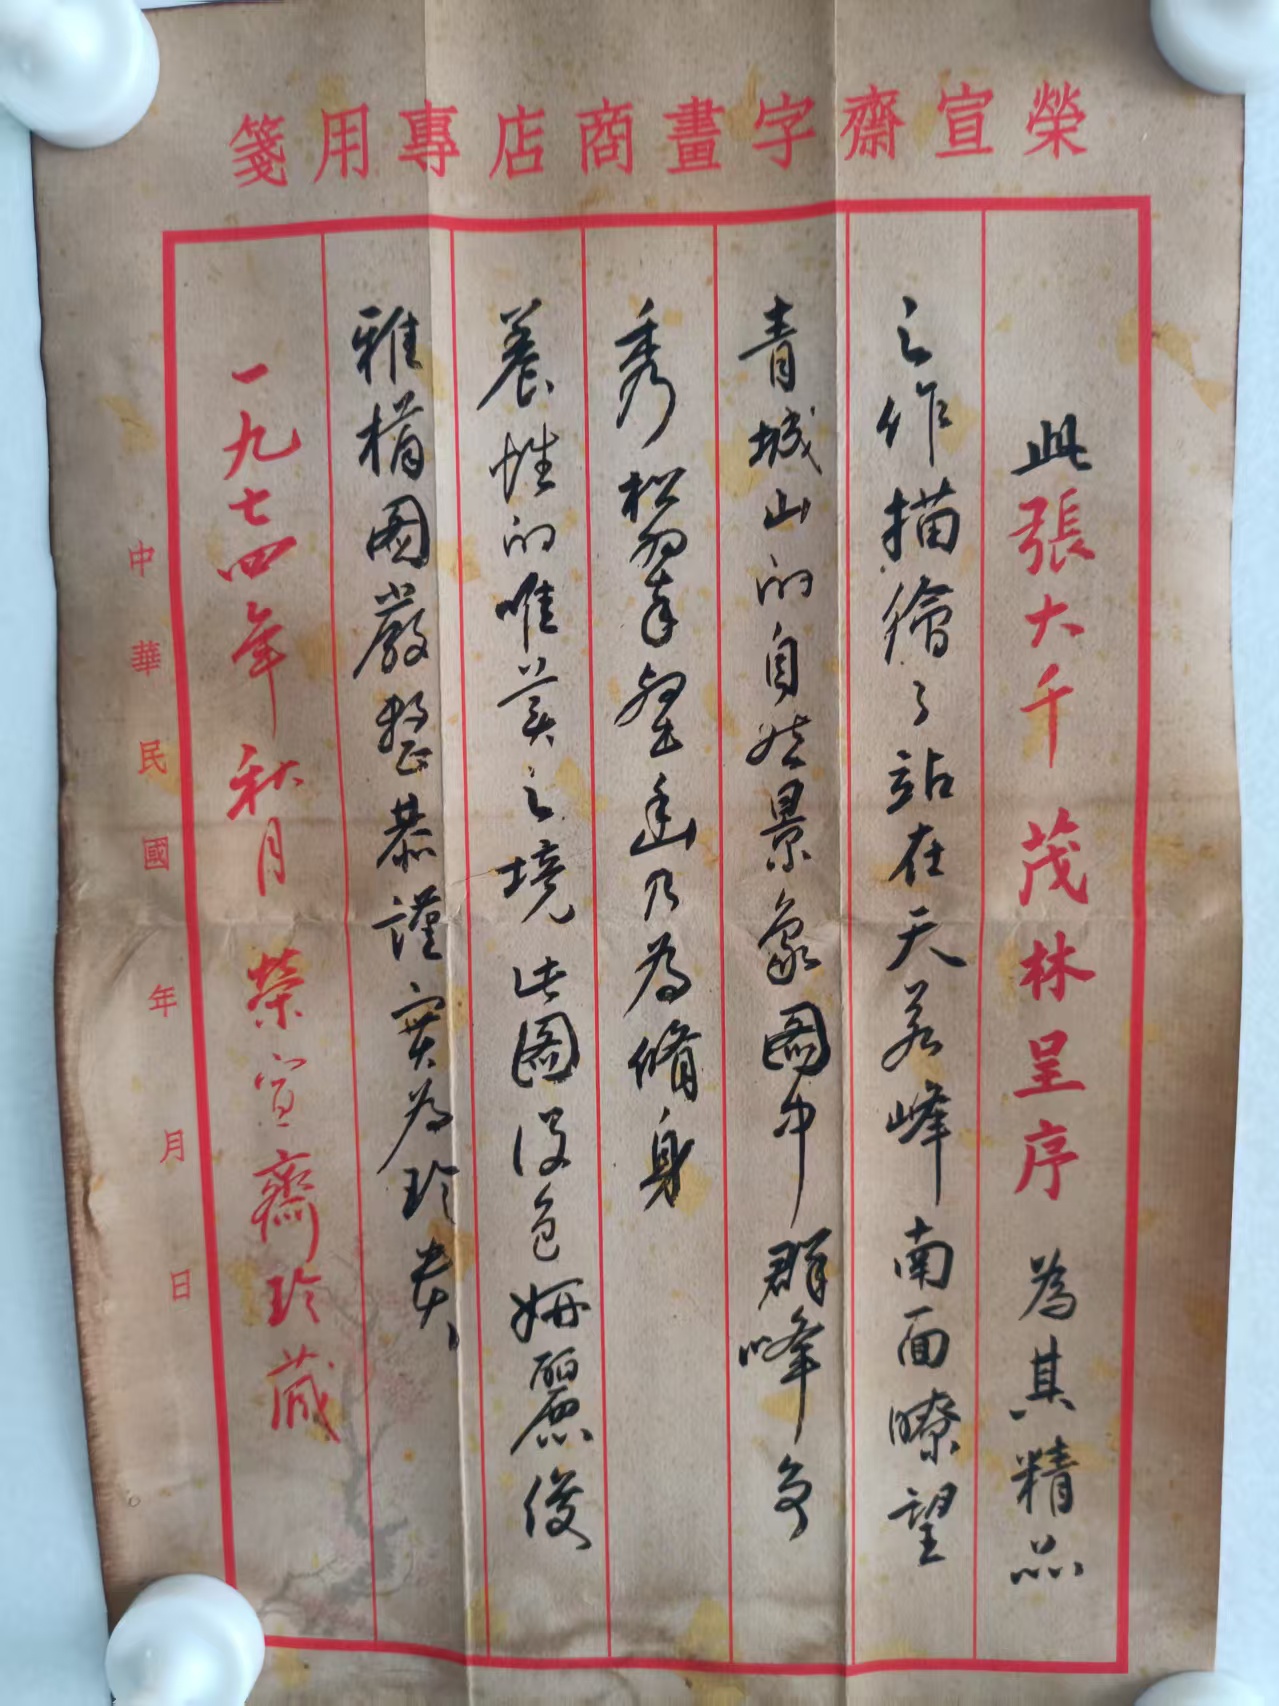 榮宣齋字畫商店專用箋
此張大千茂林呈序為其精品
之作描繪了站在天若峰南面瞭望
青城山的自然景象圖中群峰多
秀松翠壑幽乃為脩身
養性的唯美之境此圖设色妍麗俊
雅構图嚴整恭謹實為珍贵
一九七四年秋月榮宣齋珍藏
中華民國年月日